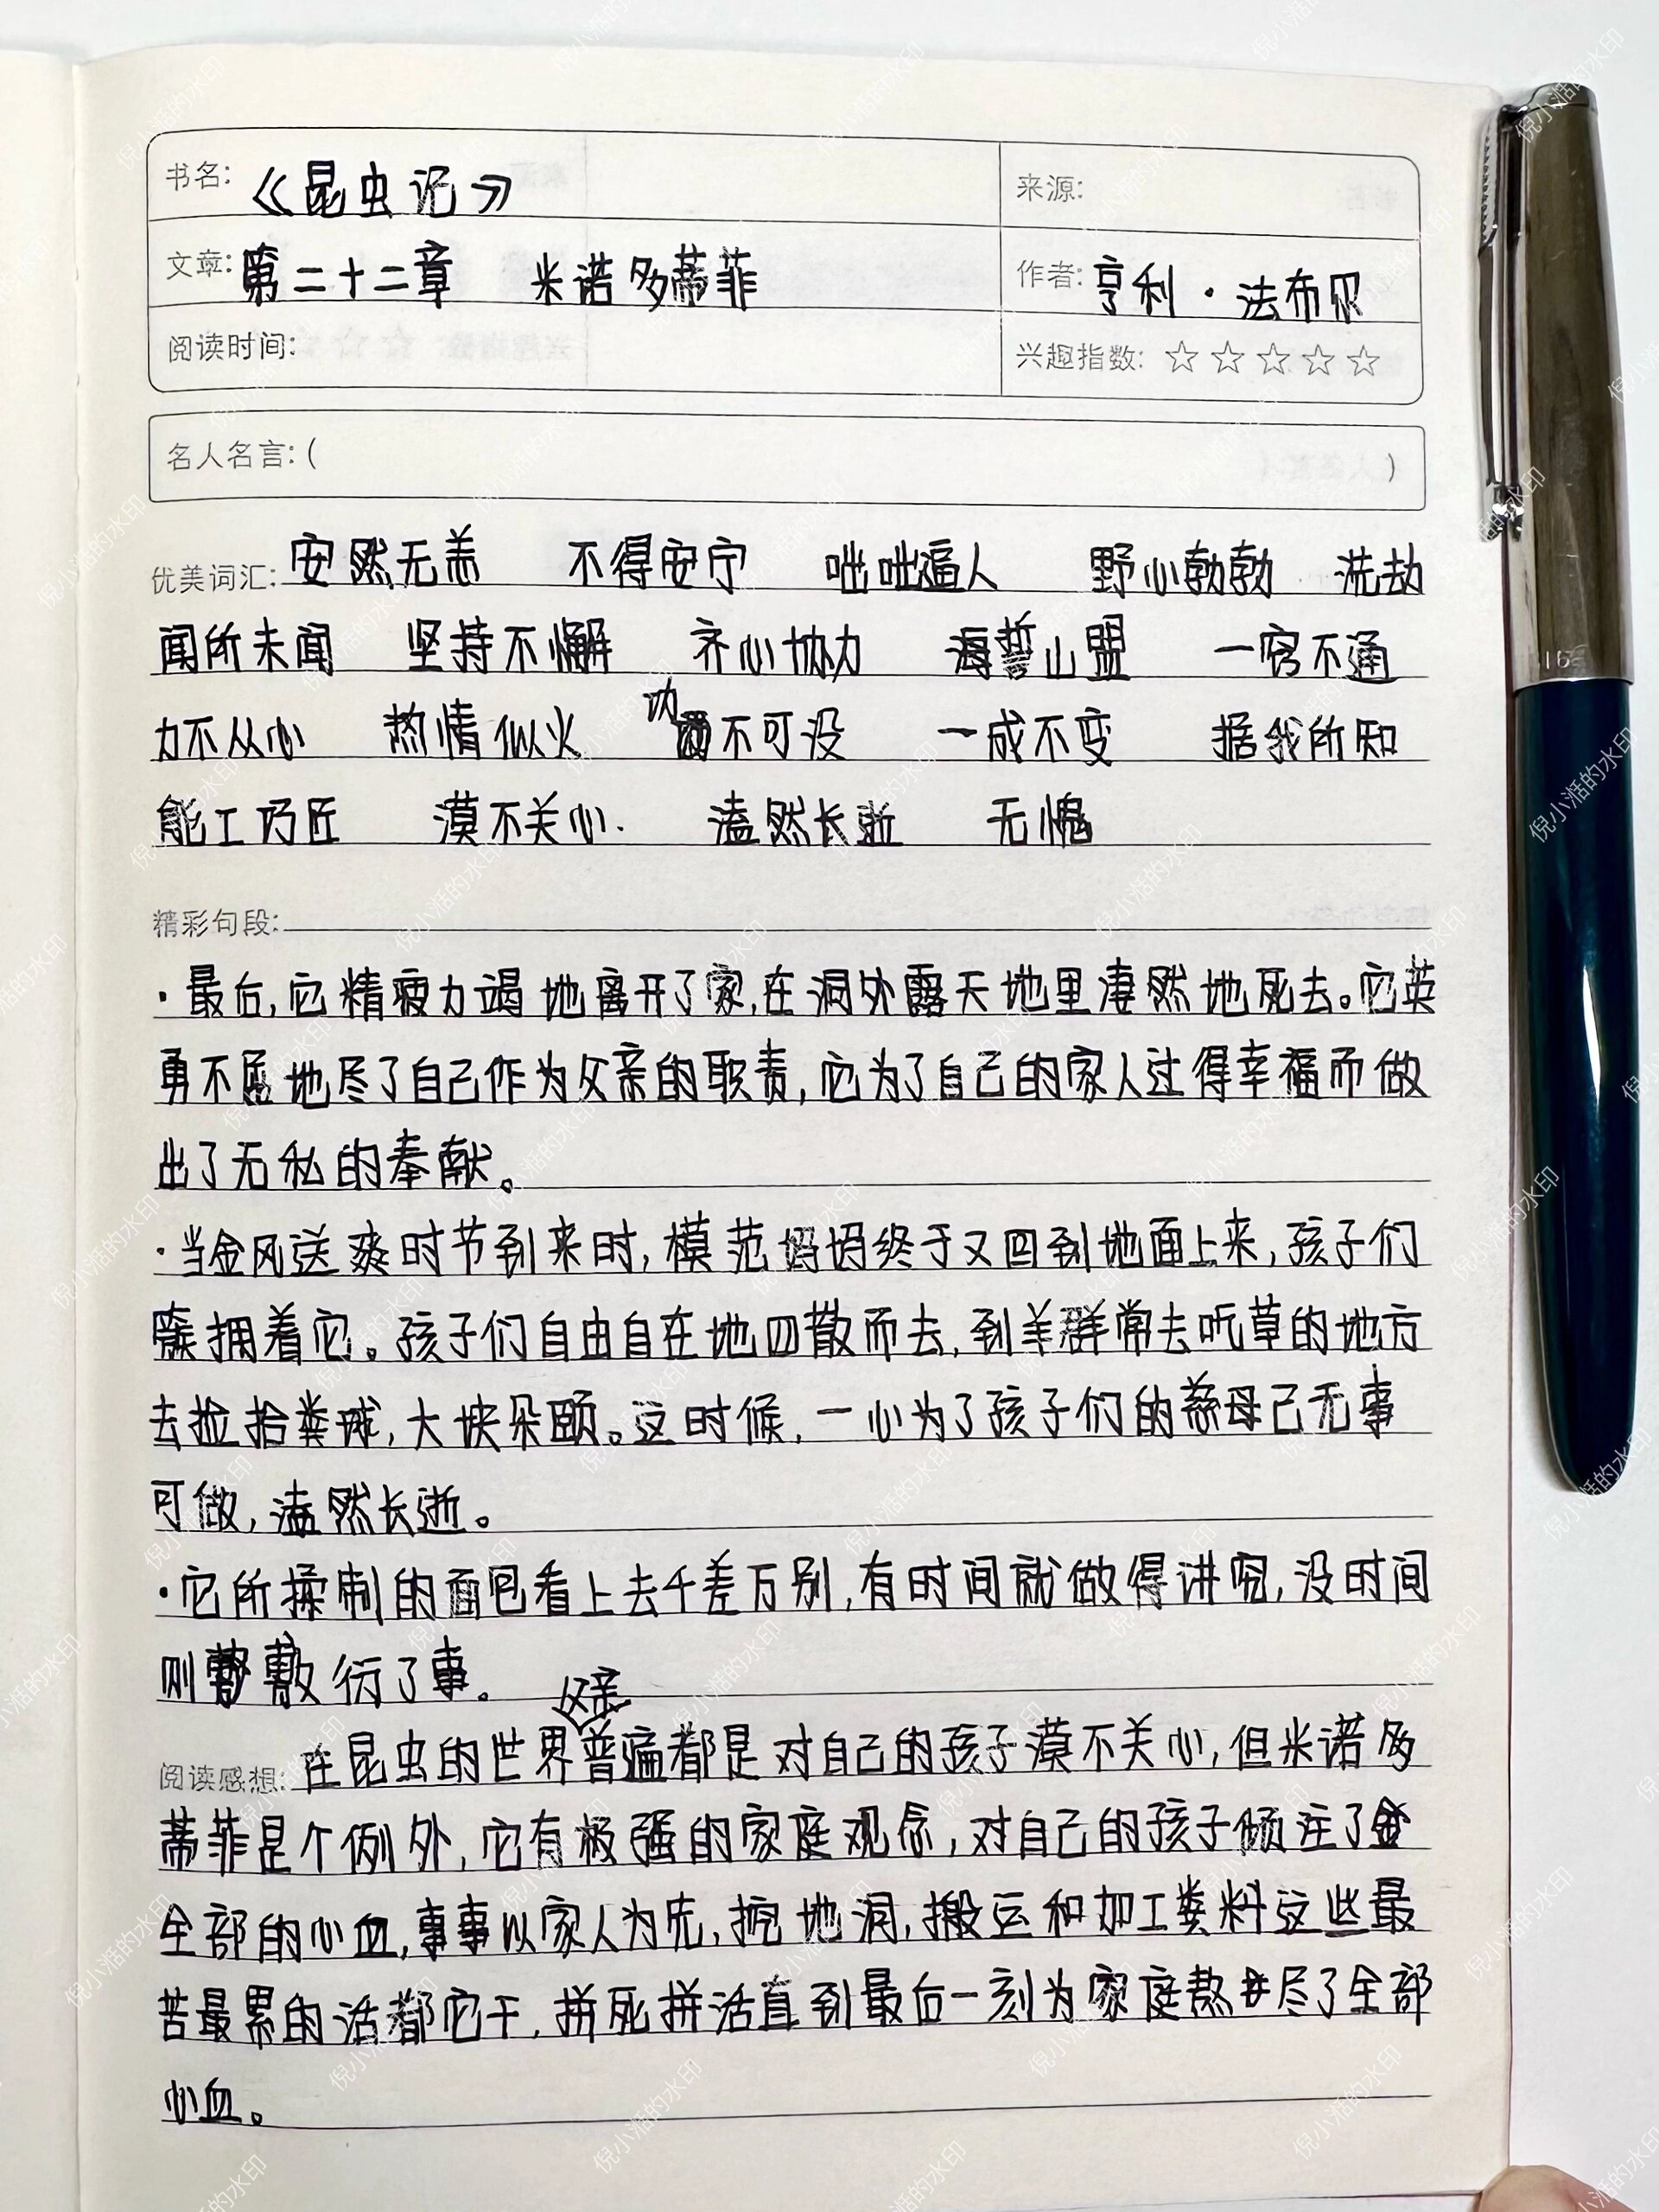 书名: 《昆虫记》 来源:
文章: 第二十二章 米诺多蒂菲 作者: 亨利·法布尔
阅读时间: 兴趣指数: ☆☆☆☆☆
名人名言: ( )
优美词汇: 安然无恙 不得安宁 咄咄逼人 野心勃勃 洗劫
闻所未闻 坚持不懈 齐心协力 海誓山盟 一窍不通
力不从心 热情似火 功不可没 一成不变 据我所知
能工巧匠 漠不关心 溘然长逝 无愧
精彩句段:
·最后,它精疲力竭地离开了家,在洞外露天地里凄然地死去。它英
勇不屈地尽了自己作为父亲的职责,它为了自己的家人过得幸福而做
出了无私的奉献。
·当金风送爽时节到来时,模范妈妈终于又回到地面上来,孩子们
簇拥着它。孩子们自由自在地四散而去,到羊群常去吃草的地方
去捡拾粪球,大快朵颐。这时候,一心为了孩子们的慈母已无事
可做,溘然长逝。
·它所揉制的面包看上去千差万别,有时间就做得讲究,没时间
则敷衍了事。
阅读感想: 在昆虫的世界父亲普遍都是对自己的孩子漠不关心,但米诺多
蒂菲是个例外,它有极强的家庭观念,对自己的孩子倾注了
全部的心血,事事以家人为先,挖地洞,搬运和加工粪料这些最
苦最累的活都它干,拼死拼活直到最后一刻为家庭熬尽了全部
心血。
倪小湉的水印